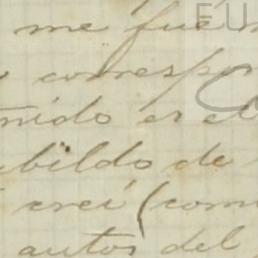 EU
me fue
correspon
nido es el
bildo de
creí (com
autos del